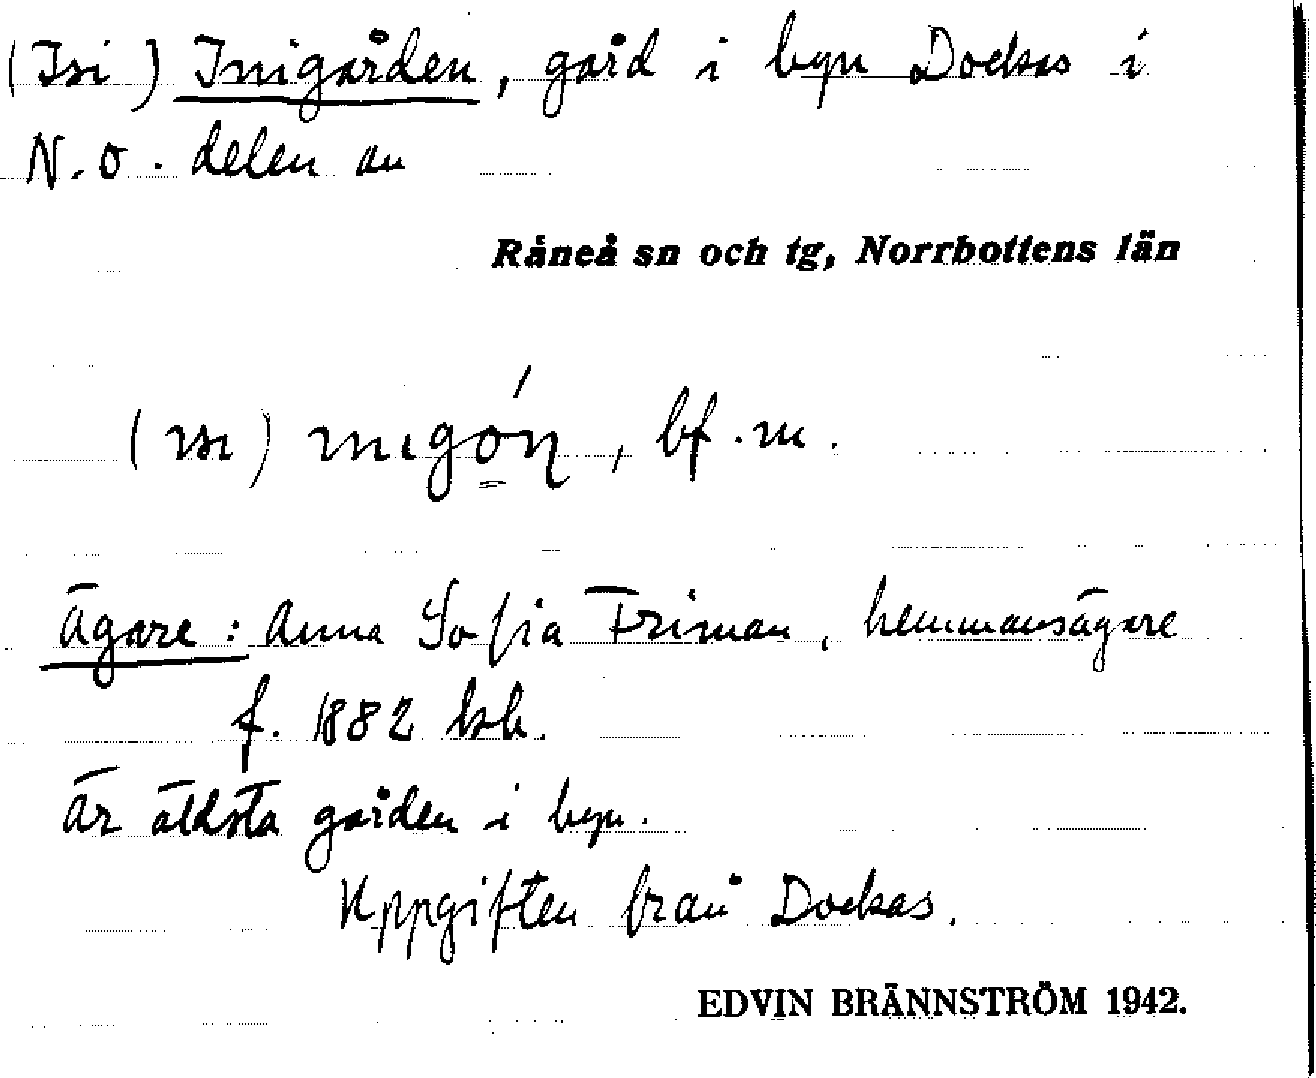 (Isi) Inigården, gård i byn Dockas i
N.O. delen av
Råneå sn och tg, Norrbottens län
bf. m.
Ägare: Anna Sofia Friman, hemmansägare
f. 1882 ibh.
Är äldsta gården i byn.
Uppgiften från Dockas.
EDVIN BRÄNNSTRÖM 1942.